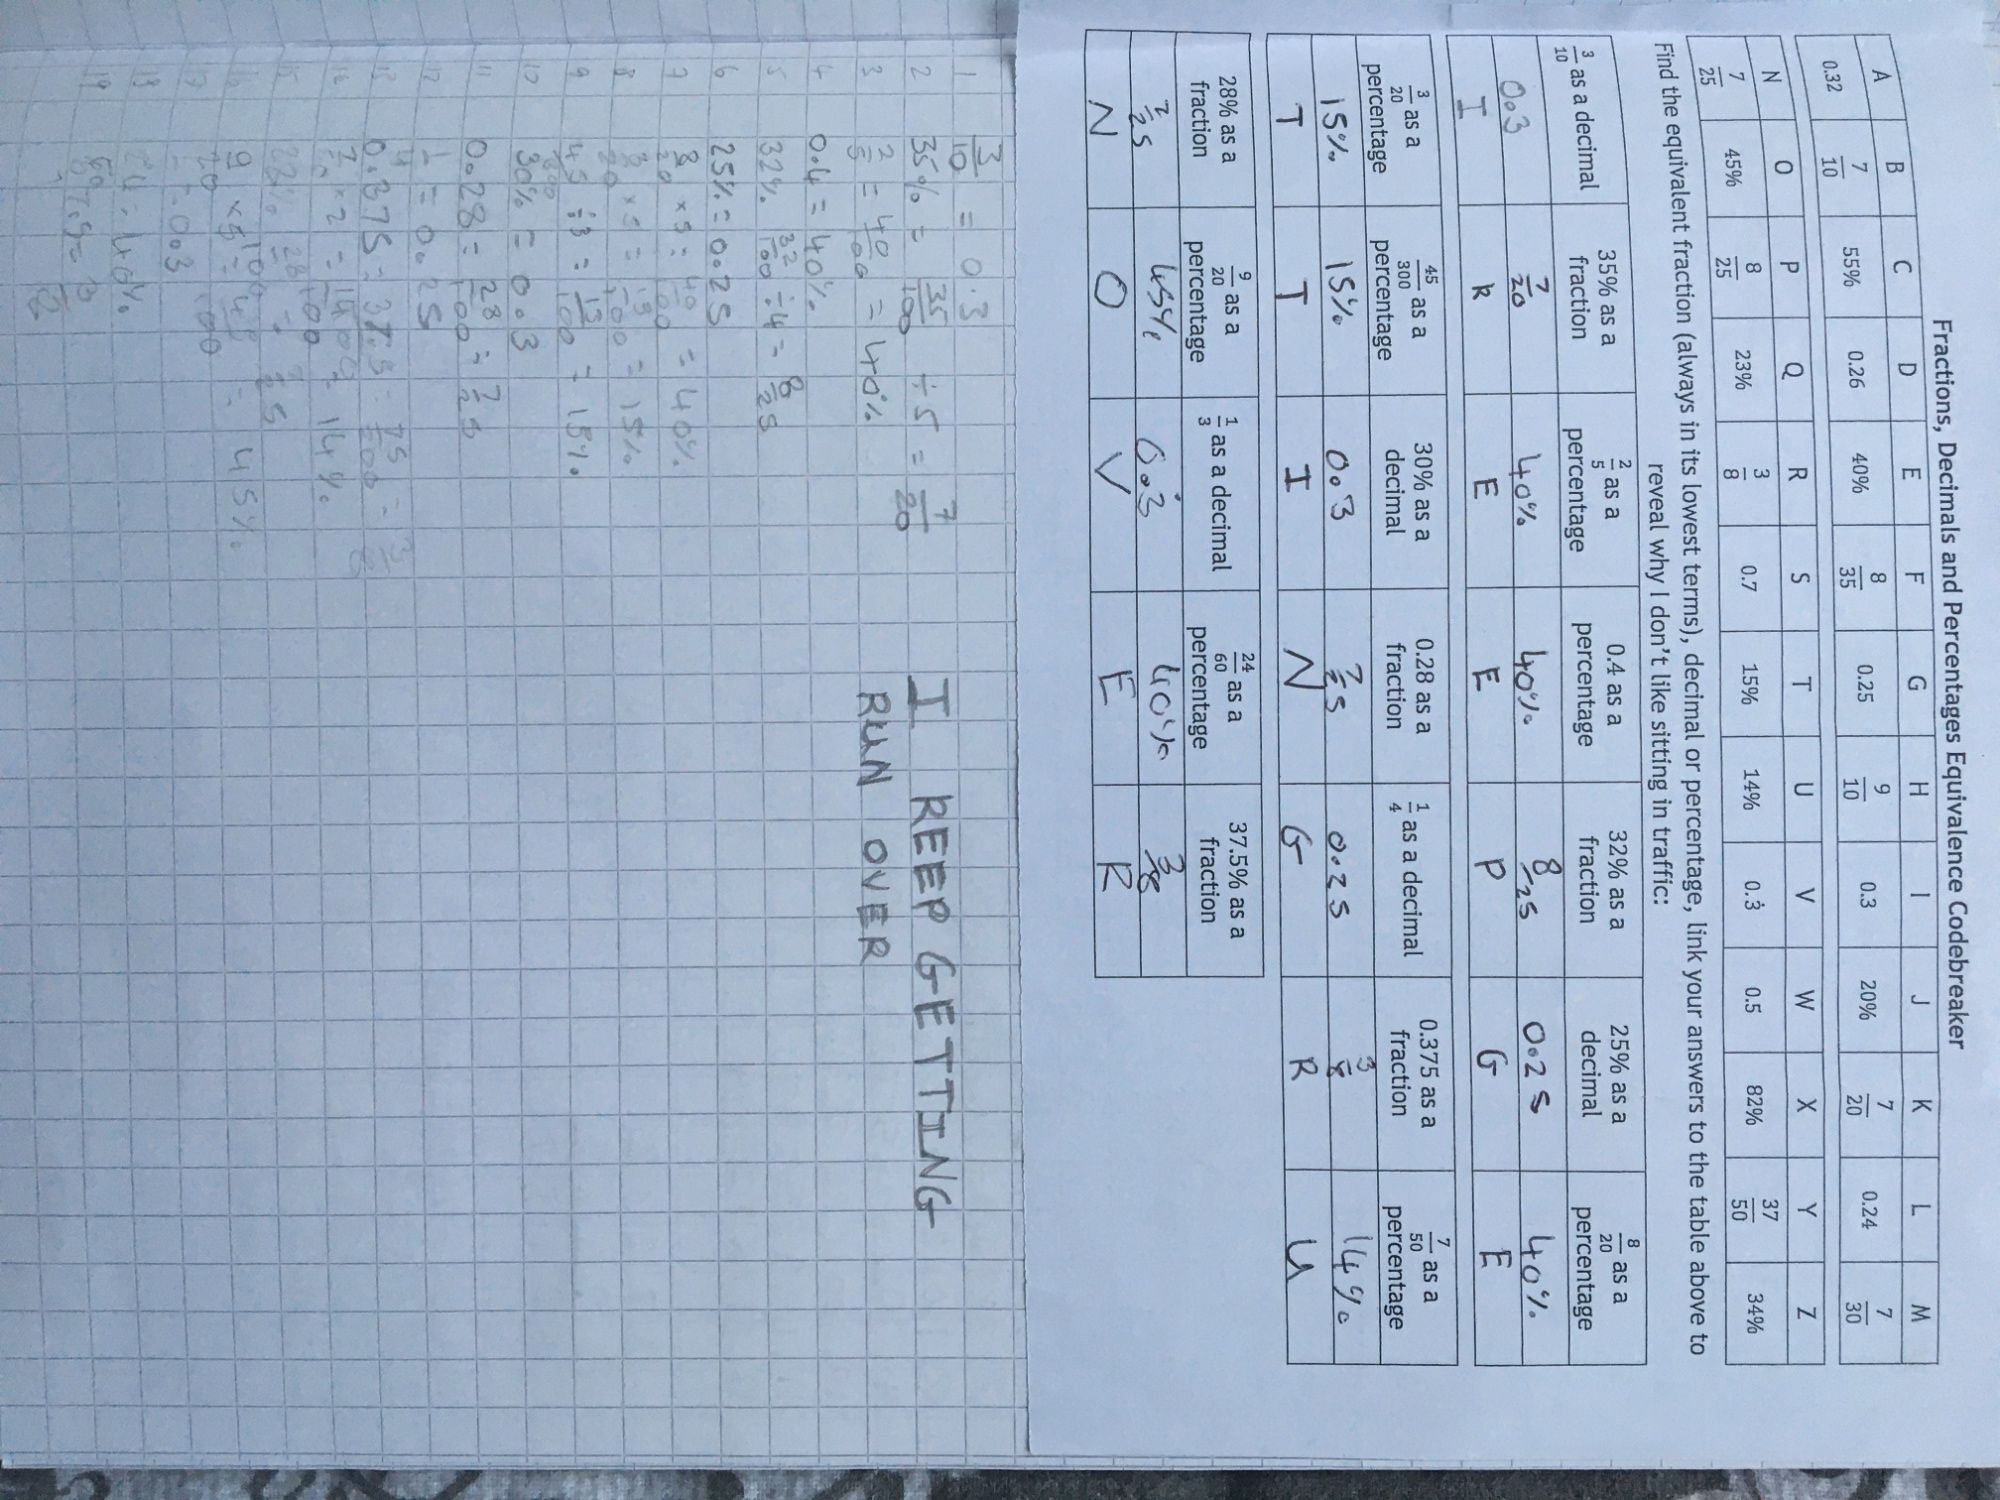 Fractions, Decimals and Percentages Equivalence Codebreaker
A B C D E F G H I J K L M
0.32 7/10 55% 0.26 40% 8/35 0.25 9/10 0.3 20% 7/20 0.24 7/30
N O P Q R S T U V W X Y Z
7/25 45% 8/25 23% 3/8 0.7 15% 14% 0.3̇ 0.5 82% 37/50 34%
Find the equivalent fraction (always in its lowest terms), decimal or percentage, link your answers to the table above to
reveal why I don't like sitting in traffic:
3/10 as a decimal 35% as a fraction 2/5 as a percentage 0.4 as a percentage 32% as a fraction 25% as a decimal 8/20 as a percentage
0.3 7/20 40% 40% 8/25 0.25 40%
I K E E P G E
3/20 as a percentage 45/300 as a percentage 30% as a decimal 0.28 as a fraction 1/4 as a decimal 0.375 as a fraction 7/50 as a percentage
15% 15% 0.3 7/25 0.25 3/8 14%
T T I N G R U
28% as a fraction 9/20 as a percentage 1/3 as a decimal 24/60 as a percentage 37.5% as a fraction
7/25 45% 0.3̇ 40% 3/8
N O V E R
1 3/10 = 0.3
2 35% = 35/100 ÷ 5 = 7/20
3 2/5 = 40/100 = 40%
4 0.4 = 40%
5 32% 32/100 ÷ 4 = 8/25
6 25% = 0.25
7 8/20 × 5 = 40/100 = 40%
8 3/20 × 5 = 15/100 = 15%
9 45/300 ÷ 3 = 15/100 = 15%
10 30% = 0.3
11 0.28 = 28/100 = 7/25
12 1/4 = 0.25
13 0.375 = 37.5 = 75/200 = 3/8
7/50 × 2 = 14/100 = 14%
28/100 = 7/25
9/20 × 5 = 45/100 = 45%
= 0.3
18 40%
19
I KEEP GETTING
RUN OVER